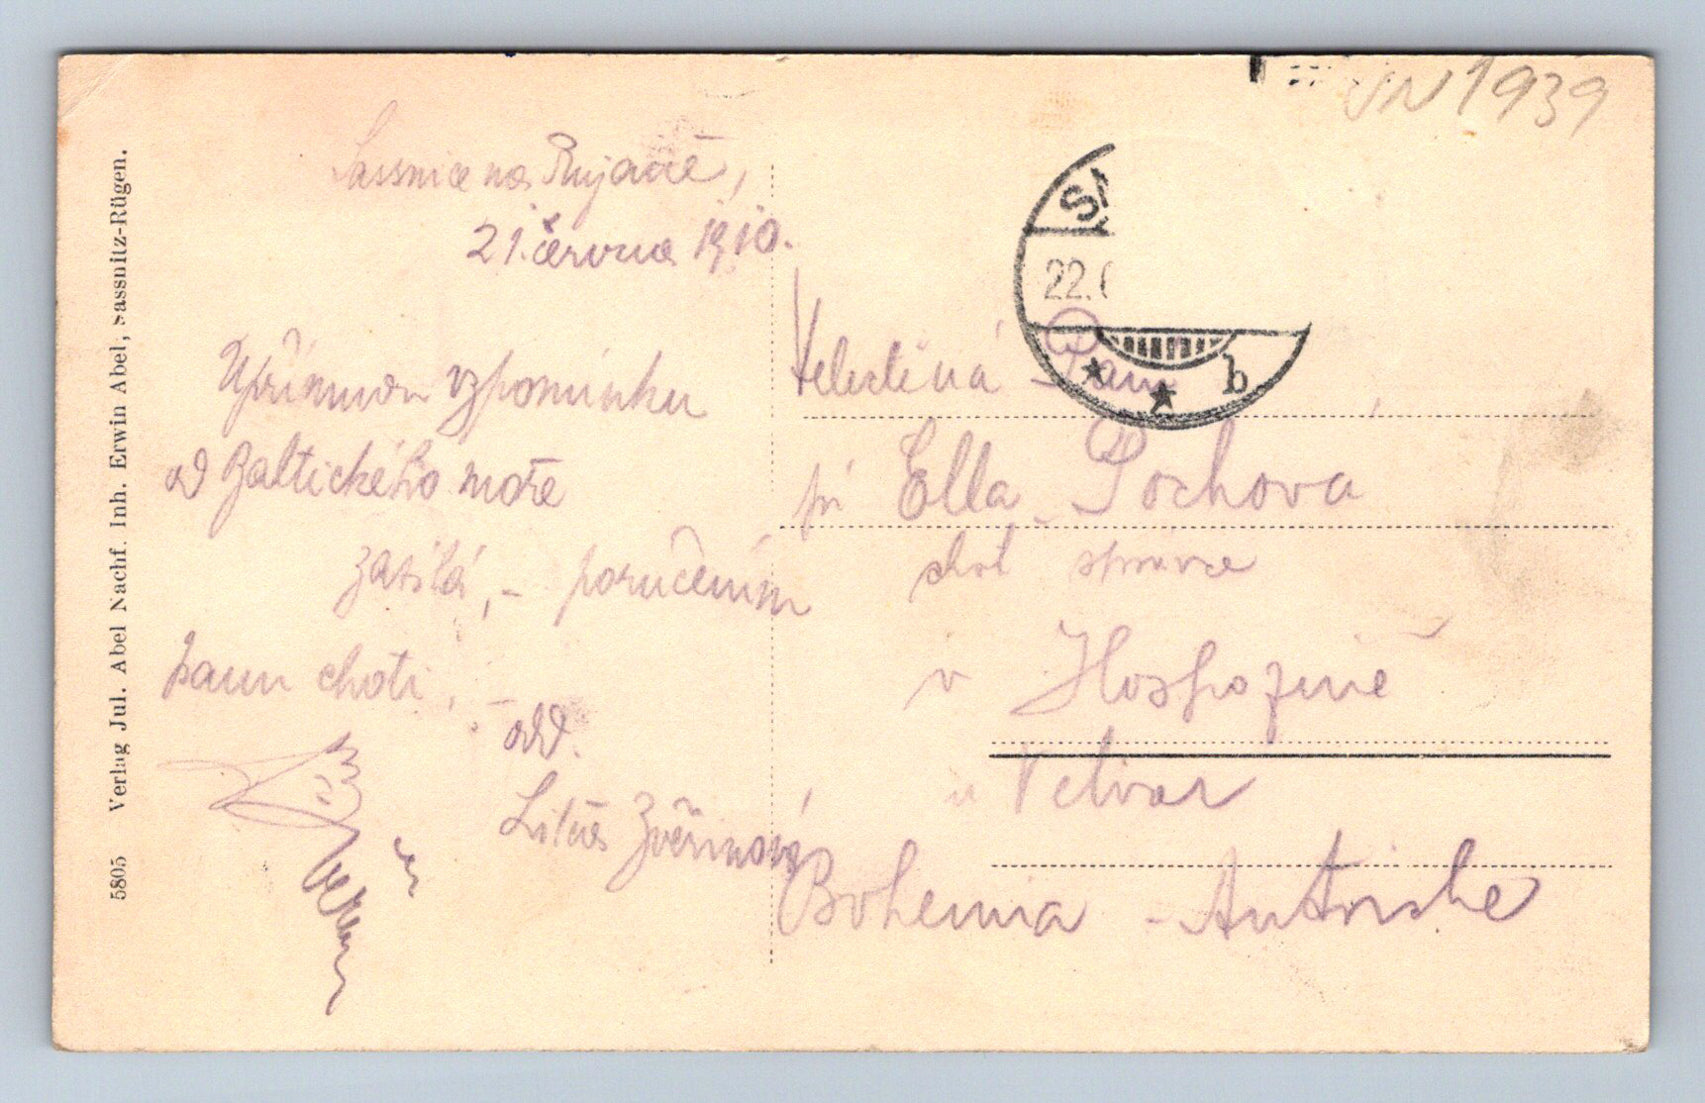 VN 1939
Sassnice na Rujaně,
21. června 1910.
Upřímnou vzpomínku
od Baltického moře
zasílá, - poručením
panu choti. -
odd.
Zvěřinová
Velectěná Paní,
pí Ella Pochova
choť správce
v Hospozíně
u Velvar
Bohemia - Autriche
S
22.
b
5805 Verlag Jul. Abel Nachf. Inh. Erwin Abel, Sassnitz-Rügen.